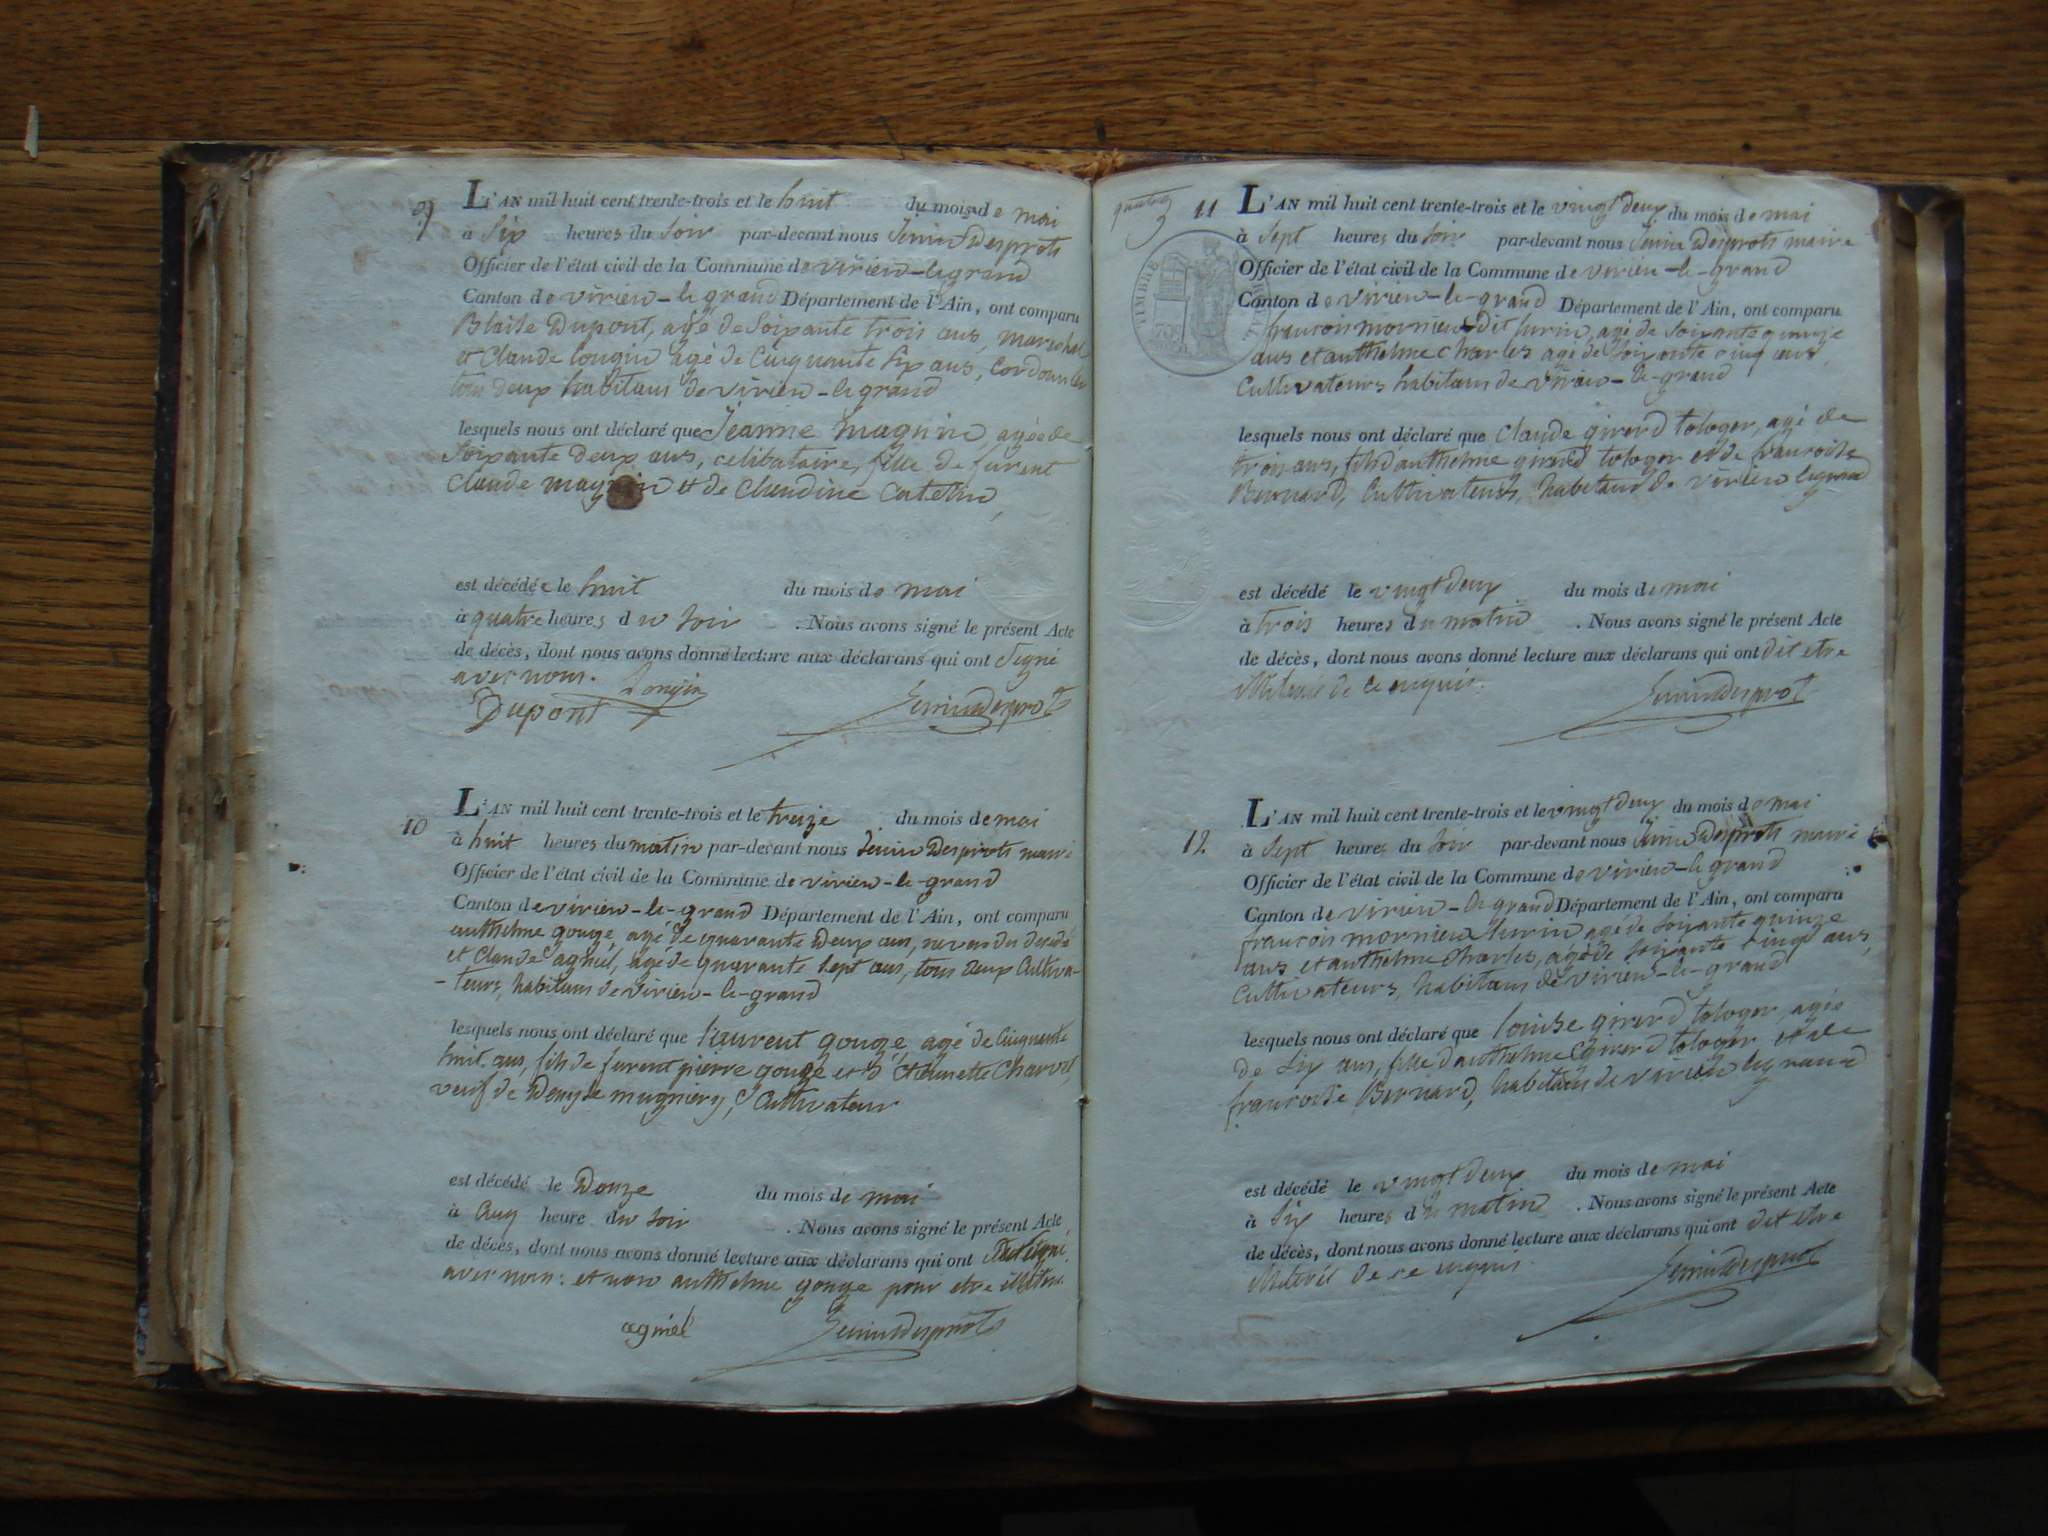 9
L'AN mil huit cent trente-trois et le huit du mois de mai
à Six heures du Soir par-devant nous Desprots
Officier de l'état civil de la Commune de virieu-le grand
Canton de virieu-le grand Département de l'Ain, ont comparu
Blaise Dupont, agé de Soixante trois ans, marechal
et Claude Longin agé de Cinquante Six ans, Cordonnier
tous deux habitans de virieu-le grand
lesquels nous ont déclaré que Jeanne Magnin, agée de
Soixante deux ans, celibataire, fille de furent
Claude magnin et de Claudine Catelin
est décédée le huit du mois de mai
à quatre heures du Soir . Nous avons signé le présent Acte
de décès, dont nous avons donné lecture aux déclarans qui ont Signé
avec nous. Longin
Dupont
10
L'AN mil huit cent trente-trois et le treize du mois de mai
à huit heures du matin par-devant nous Desprots maire
Officier de l'état civil de la Commune de virieu-le-grand
Canton de virieu-le-grand Département de l'Ain, ont comparu
anthelme gouge, agé de quarante Deux ans, neveu du decedé
et Claude agniel, agé de quarante Sept ans, tous deux Cultiva-
-teurs, habitans de virieu-le-grand
lesquels nous ont déclaré que Laurent gouge agé de Cinquante
huit ans, fils de furent pierre gouge et d'Etiennette Charvet,
veuf de Denyse mugniery, Cultivateur
est décédé le Douze du mois de mai
à heure du Soir . Nous avons signé le présent Acte
de décès, dont nous avons donné lecture aux déclarans qui ont
avec nous. et non anthelme gouge pour etre
agniel
11
L'AN mil huit cent trente-trois et le vingt Deux du mois de mai
à Sept heures du Soir par-devant nous Desprots maire
Officier de l'état civil de la Commune de virieu-le-grand
Canton de virieu-le-grand Département de l'Ain, ont comparu
francois mornieux dit agé de Soixante quinze
ans et anthelme charles agé de Soixante cinq ans
Cultivateurs habitans de virieu-le-grand
TIMBRE
lesquels nous ont déclaré que Claude girerd tologer, agé de
trois ans, fils d'anthelme girerd tologer et de francoise
Bernard, Cultivateurs, habitans de virieu legrand
est décédé le vingt deux du mois de mai
à trois heures du matin . Nous avons signé le présent Acte
de décès, dont nous avons donné lecture aux déclarans qui ont dit etre
de ce enquis.
12.
L'AN mil huit cent trente-trois et le vingt Deux du mois de mai
à Sept heures du Soir par-devant nous Desprots maire
Officier de l'état civil de la Commune de virieu-le grand
Canton de virieu-le-grand Département de l'Ain, ont comparu
francois mornieux agé de Soixante quinze
ans et anthelme Charles, agé de Soixante cinq ans,
Cultivateurs, habitans de virieu-le-grand
lesquels nous ont déclaré que Louise girerd tologer, agée
de Six ans, fille d'anthelme girerd tologer et de
francoise Bernard, habitans de virieu legrand
est décédé le vingt deux du mois de mai
à Six heures du matin . Nous avons signé le présent Acte
de décès, dont nous avons donné lecture aux déclarans qui ont dit etre
de ce enquis.